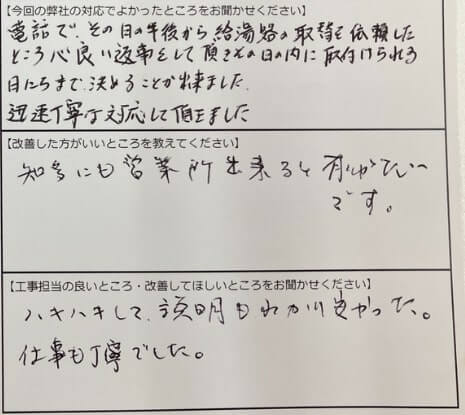 【今回の弊社の対応でよかったところをお聞かせください】
電話で、その日の午後から給湯器の取替を依頼した
ところ心良い返事をして頂きその日の内に取付けられる
日にちまで決めることが出来ました。
迅速丁寧な対応して頂きました
【改善した方がいいところを教えてください】
知多にも営業所出来ると有りがたい
です。
【工事担当の良いところ・改善してほしいところをお聞かせください】
ハキハキして、説明もわかり良かった。
仕事も丁寧でした。